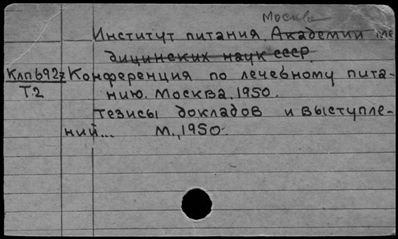 Москва
Институт питания Академии ме
дицинских наук СССР.
Клп692z Конференция по лечебному пита-
Т.2 нию. Москва. 1950.
Тезисы докладов и выступле-
ний... М., 1950.